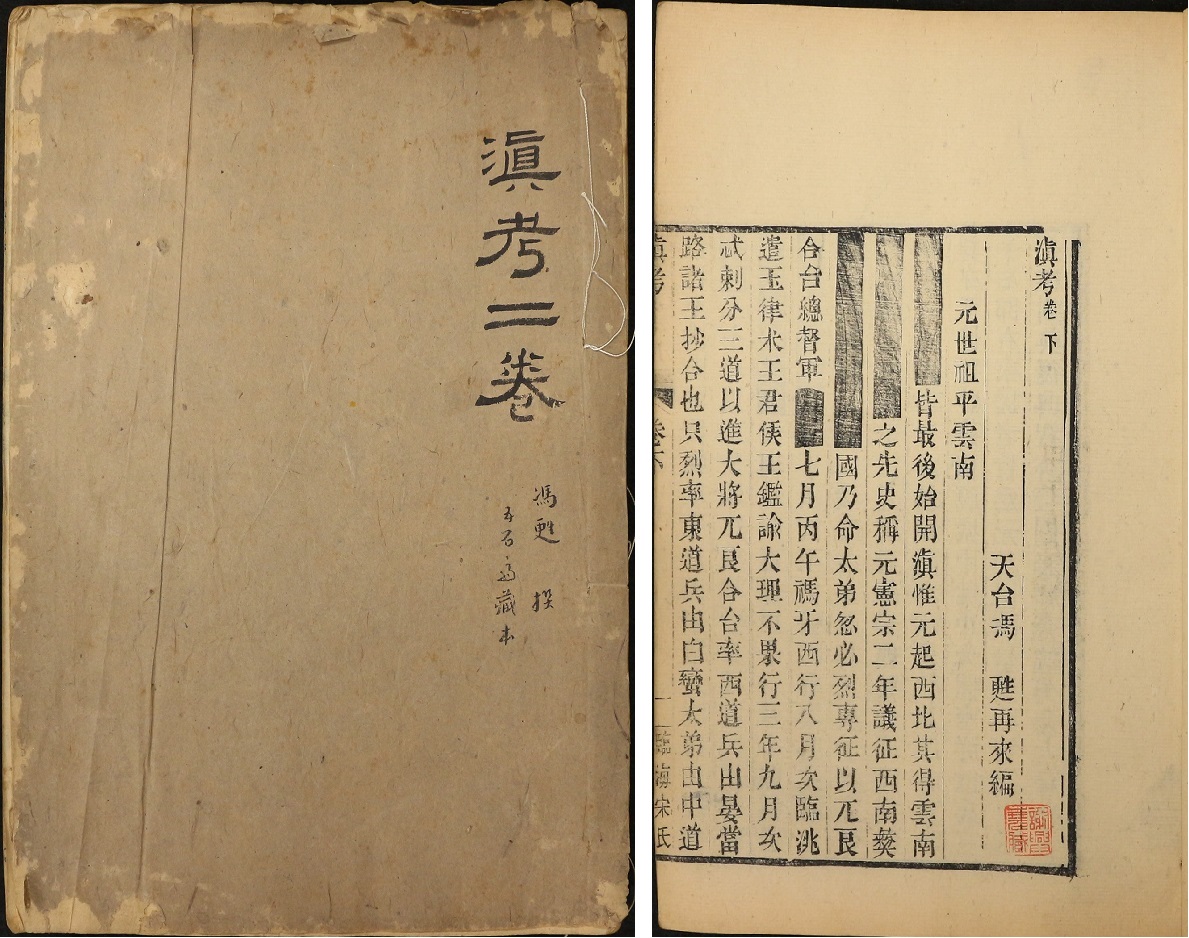 滇考二卷
馮甦 撰
滇考 卷下
天台馮 甦再來編
元世祖平雲南
皆最後始開滇惟元起西北其得雲南
之先史稱元憲宗二年議征西南夷
國乃命太弟忽必烈專征以兀良
合台總督軍
七月丙午禡牙西行八月次臨洮
遣玉律术王君候王鑑諭大理不果行三年九月次
忒剌分三道以進大將兀良合台率西道兵由晏當
路諸王抄合也只烈率東道兵由白蠻太弟由中道
滇考
卷下
一
臨海宋氏